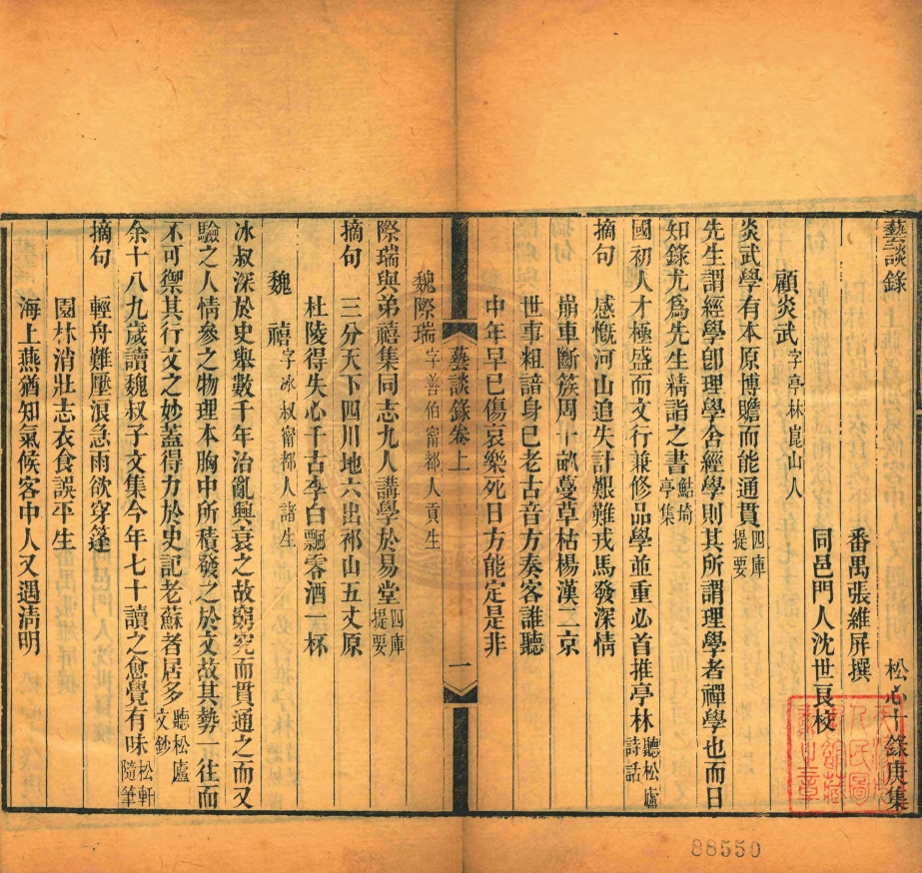 藝談錄　松心十錄庚集
番禺張維屏撰
同邑門人沈世良校
顧炎武字亭林崑山人
炎武學有本原博贍而能通貫四庫提要
先生謂經學卽理學舍經學則其所謂理學者禪學也而日
知錄尤爲先生精詣之書鮚埼亭集
國初人才極盛而文行兼修品學並重必首推亭林聽松廬詩話
摘句　感慨河山追失計艱難戎馬發深情
崩車斷簇周十畝蔓草枯楊漢二京
世事粗諳身已老古音方奏客誰聽
中年早已傷哀樂死日方能定是非
藝談錄卷上　一
魏際瑞字善伯甯都人貢生
際瑞與弟禧集同志九人講學於易堂四庫提要
摘句　三分天下四川地六出祁山五丈原
杜陵得失心千古李白飄零酒一杯
魏禧字冰叔甯都人諸生
冰叔深於史舉數千年治亂興衰之故窮究而貫通之而又
驗之人情參之物理本胸中所積發之於文故其勢一往而
不可禦其行文之妙蓋得力於史記老蘇者居多聽松廬文鈔
余十八九歲讀魏叔子文集今年七十讀之愈覺有味松軒隨筆
摘句　輕舟難壓浪急雨欲穿篷
園林消壯志衣食誤平生
海上燕猶知氣候客中人又遇清明
88550